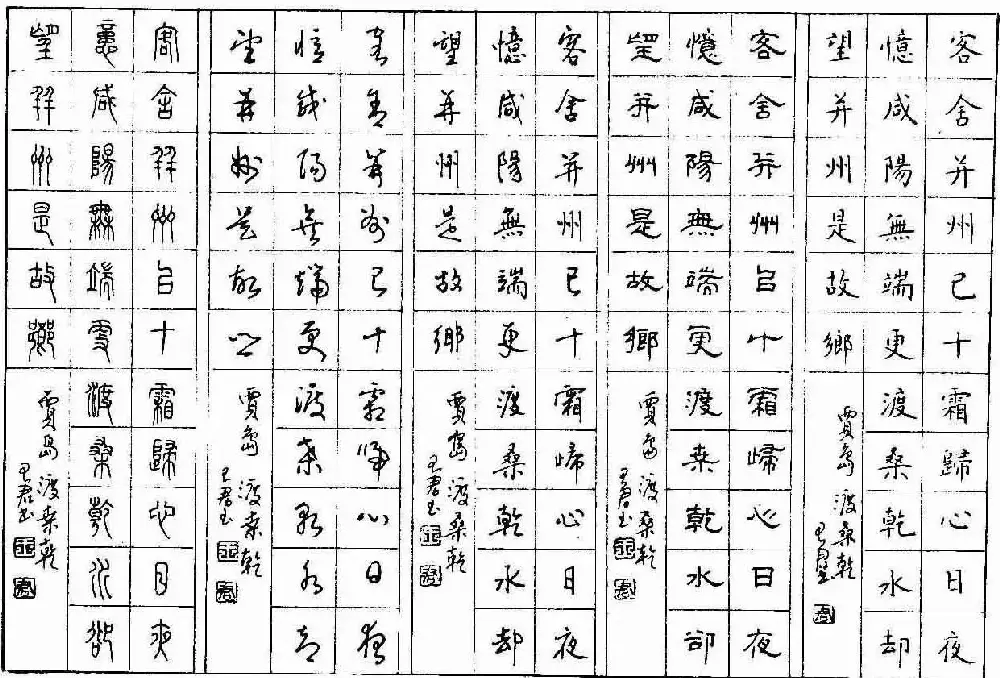 客舍并州已十霜歸心日夜
憶咸陽無端更渡桑乾水却
望并州是故鄉
賈島 渡桑乾
客舍并州已十霜歸心日夜
憶咸陽無端更渡桑乾水卻
望并州是故鄉
賈島 渡桑乾
王君书
客舍并州已十霜歸心日夜
憶咸陽無端更渡桑乾水却
望并州是故鄉
賈島 渡桑乾
王君书
客舍并州已十霜歸心日夜
憶咸陽無端更渡桑乾水却
望并州是故鄉
賈島 渡桑乾
王君书
客舍并州已十霜歸心日夜
憶咸陽無端更渡桑乾水卻
望并州是故鄉
賈島 渡桑乾
王君书